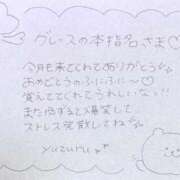 グレースの本指名さま♡
今月も来てくれてありがとう
おめでとうのふにふに〜♡
覚えててくれてうれしいな!!
また倍ずるで爆笑して
ストレス発散してね
yuzuru